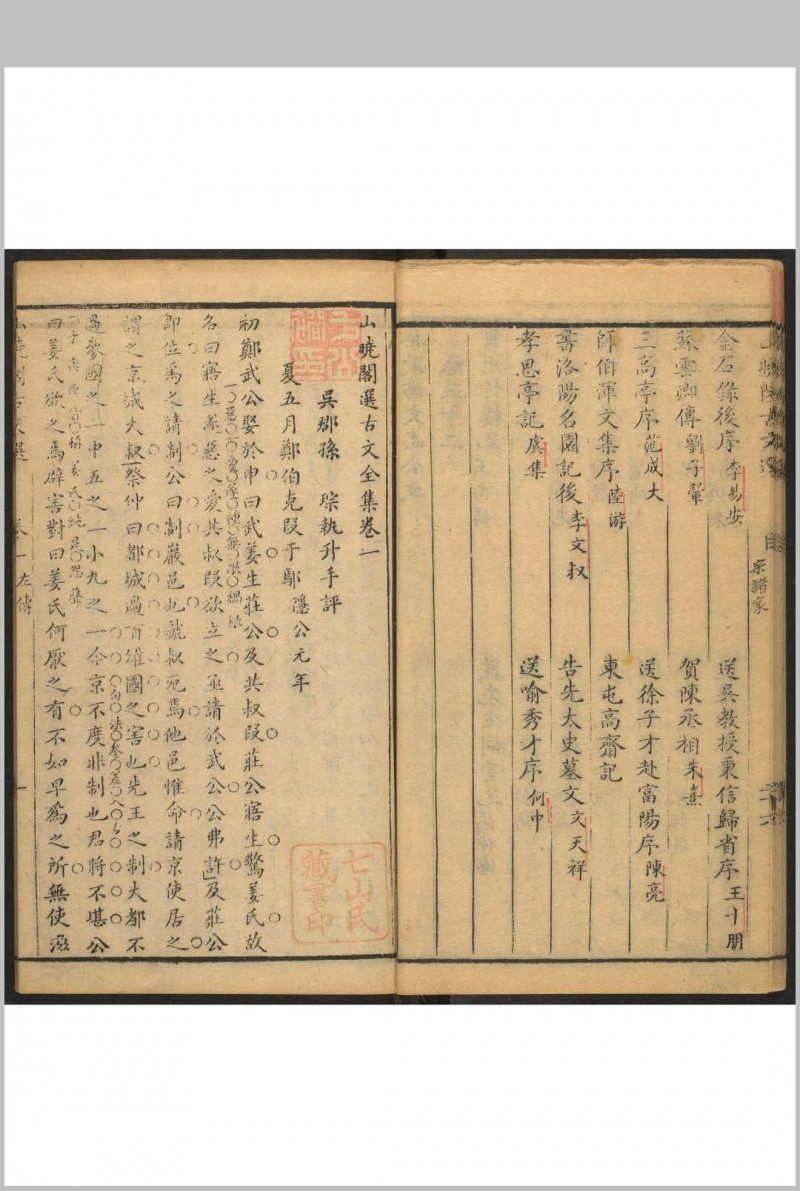 金石錄後序 李易安
送吳教授秉信歸省序 王十朋
蘇雲卿傳 劉子翬
賀陳丞相 朱熹
三高亭序 范成大
送徐子才赴富陽序 陳亮
師伯渾文集序 陸游
東屯高齋記
書洛陽名園記後 李文叔
告先太史墓文 文天祥
孝思亭記 虞集
送喻秀才序 何中
宋諸家
山曉閣選古文全集卷一
吳郡孫 琮執升手評
夏五月鄭伯克段于鄢 隱公元年
初鄭武公娶於申曰武姜生莊公及共叔段莊公寤生驚姜氏故
名曰寤生遂惡之愛共叔段欲立之亟請於武公公弗許及莊公
即位爲之請制公曰制巖邑也虢叔死焉他邑惟命請京使居之
謂之京城大叔祭仲曰都城過百雉國之害也先王之制大都不
過參國之一中五之一小九之一今京不度非制也君將不堪公
曰姜氏欲之焉辟害對曰姜氏何厭之有不如早爲之所無使滋
山曉閣古文選 卷一左傳 一
七山氏
藏書印